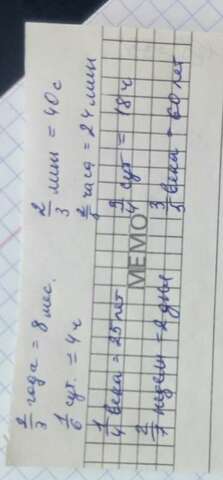 2/3 года = 8 мес.
1/6 сут. = 4 ч
1/4 века = 25 лет
2/7 недели = 2 дня
2/3 мин = 40 с
2/5 часа = 24 мин
3/4 сут = 18 ч
3/5 века = 60 лет
МЕМО